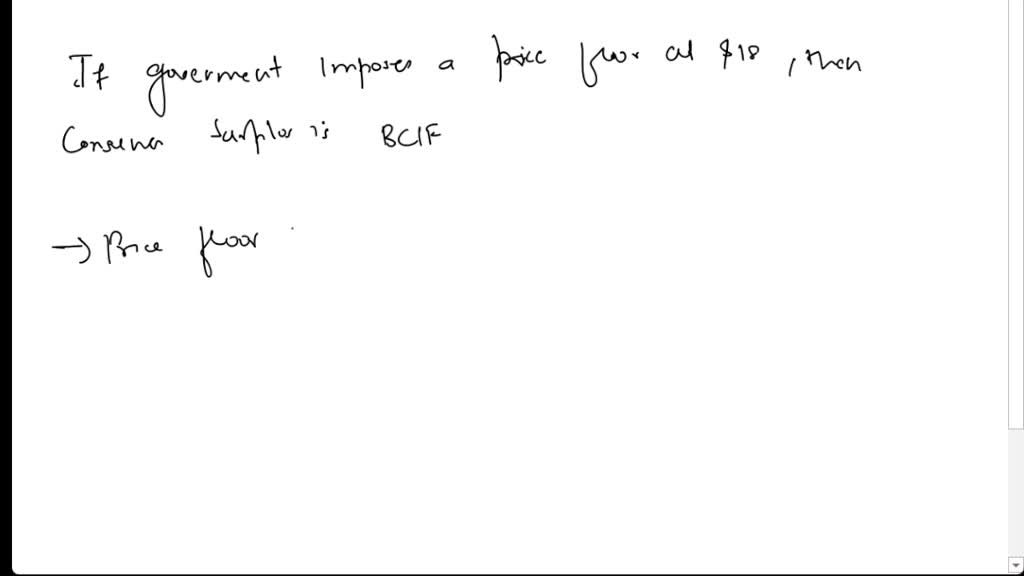 If goverment Imposes a price floor at $18, then
Consumer Surplus is BCIF
→ Price floor